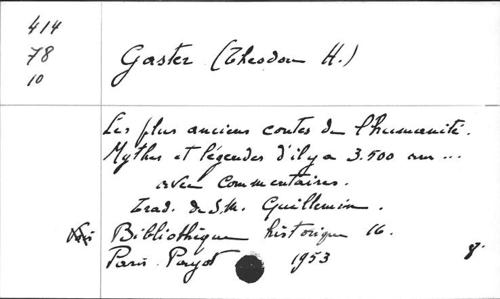 414
78
10
Gaster (Theodor H.)
Les plus anciens contes de l'humanité.
Mythes et légendes d'il y a 3.500 ans ...
avec commentaires.
Trad. de S.M. Guillemin.
Bibliothèque historique 16.
Paris. Payot 1953 8°